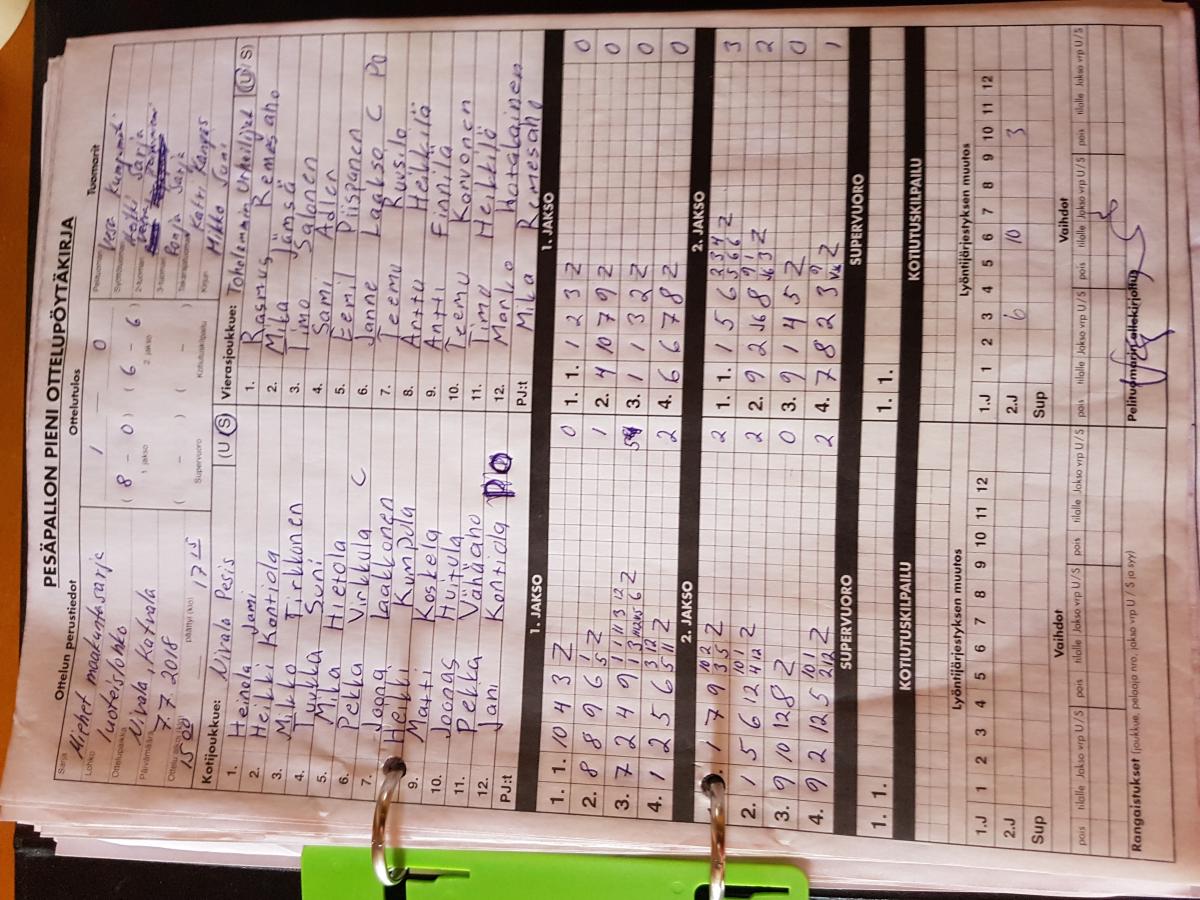 PESÄPALLON PIENI OTTELUPÖYTÄKIRJA
Ottelun perustiedot
Sarja
Miehet maakuntasarja
Lohko
luoteislohko
Ottelupaikka
Nivala, Katvala
Päivämäärä
7.7.2018
Ottelu alkoi (klo)
15 00
päättyi (klo)
17 15
Ottelutulos
1 — 0
( 8 – 0 ) ( 6 – 6 )
1. jakso 2. jakso
( – ) ( – )
Supervuoro Kotiutuskilpailu
Tuomarit
Pelituomari
Vesa
Syöttötuomari
Sarja
2-tuomari
3-tuomari
Ronja Sarja
Takarajatuomari
Katri Kangas
Kirjuri
Mikko Suni
Kotijoukkue: Nivala Pesis (U S)
1. Heinola Jami
2. Heikki Kontiola
3. Mikko Tirkkonen
4. Tuukka Suni
5. Mika Hietala
6. Pekka Virkkula C
7. Jaana Laakkonen
Heikki Kumpula
9. Matti Koskela
10. Joonas Huitula
11. Pekka Vähäaho
12. Jani Kontiola
PJ:t
Vierasjoukkue: Toholammin Urheilijat (U S)
1. Rasmus Remesaho
2. Mika Jämsä
3. Timo Salonen
4. Sami Adlen
5. Eemil Piispanen
6. Janne Laakso C PO
7. Teemu Ruusila
8. Arttu Heikkilä
9. Antti Finnilä
10. Teemu Korvonen
11. Timo Heikkilä
12. Marko Hotalainen
PJ:t Mika Remesaho
1. JAKSO
1. 1. 10 4 3 Z 0
2. 8 8 9 6 1 5 Z 1
3. 7 2 4 9 Z 5
4. 1 2 5 6 3 12 5 11 Z 2
1. JAKSO
1. 1. 1 2 3 Z 0
2. 4 10 7 9 Z 0
3. 1 1 3 2 Z 0
4. 6 6 7 8 Z 0
2. JAKSO
1. 1 7 9 10 2 3 5 Z 2
2. 1 5 6 12 10 1 4 12 Z 2
3. 9 10 12 8 Z 0
4. 9 2 12 5 10 1 2 12 Z 2
2. JAKSO
1. 1. 1 5 6 2 3 4 5 6 6 Z 3
2. 9 2 8 9 1 3 Z 2
3. 9 1 4 5 Z 0
4. 7 8 2 3 9 Z 1
SUPERVUORO
1. 1.
SUPERVUORO
1. 1.
KOTIUTUSKILPAILU
KOTIUTUSKILPAILU
Lyöntijärjestyksen muutos
1.J 1 2 3 4 5 6 7 8 9 10 11 12
2.J
Sup
Lyöntijärjestyksen muutos
1.J 1 2 3 4 5 6 7 8 9 10 11 12
2.J 6 10 3
Sup
Vaihdot
pois tilalle Jakso vrp U/S pois tilalle Jakso vrp U/S pois tilalle Jakso vrp U/S
Vaihdot
pois tilalle Jakso vrp U/S pois tilalle Jakso vrp U/S pois tilalle Jakso vrp U/S
Rangaistukset (joukkue, pelaaja nro, jakso vrp U/S ja syy)
Pelituomarin allekirjoitus